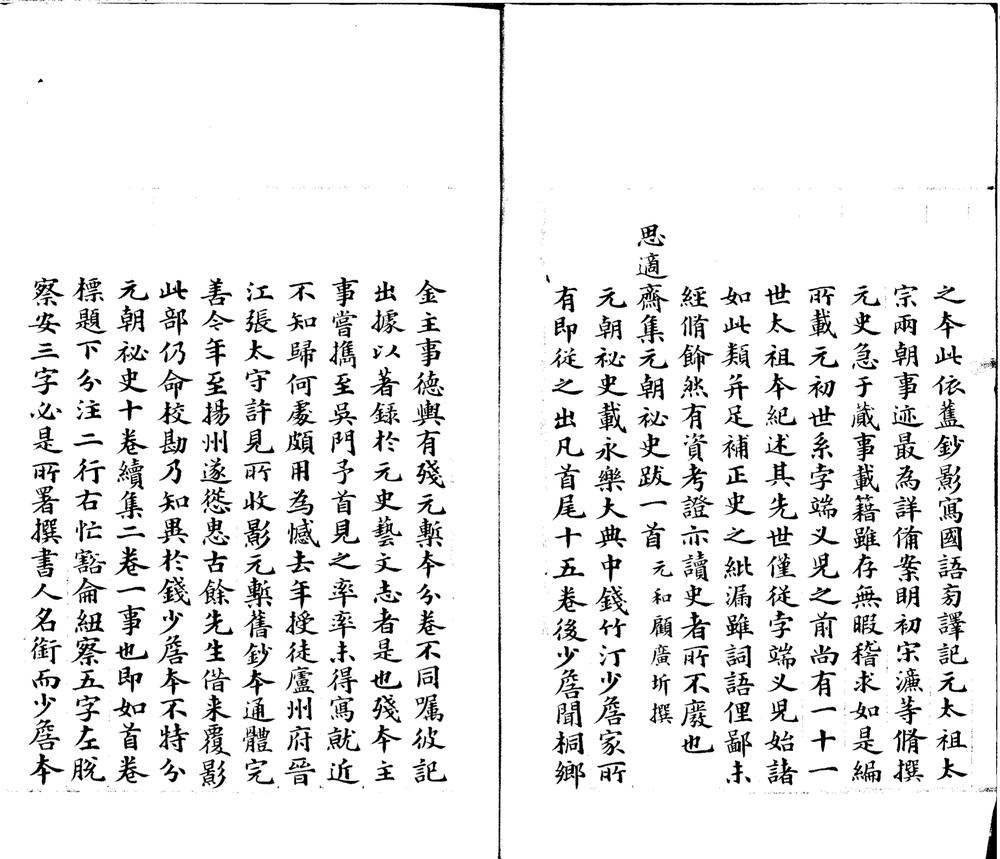 之本此依舊鈔影寫國語旁譯記元太祖太
宗兩朝事迹最為詳備案明初宋濂等脩撰
元史急于蕆事載籍雖存無暇稽求如是編
所載元初世系孛端义児之前尚有一十一
世太祖本紀述其先世僅從孛端义児始諸
如此類并足補正史之紕漏雖詞語俚鄙未
經脩飾然有資考證亦讀史者所不廢也
思適齋集元朝祕史跋一首 元和顧廣圻撰
元朝祕史載永樂大典中錢竹汀少詹家所
有即從之出凡首尾十五卷後少詹聞桐鄉
金主事德輿有殘元槧本分卷不同囑彼記
出據以著錄於元史藝文志者是也殘本主
事嘗攜至吳門予首見之率率未得寫就近
不知歸何處頗用為憾去年授徒廬州府晉
江張太守許見所收影元槧舊鈔本通體完
善今年至揚州遂慫恿古餘先生借來覆影
此部仍命校勘乃知異於錢少詹本不特分
元朝祕史十卷續集二卷一事也即如首卷
標題下分注二行右忙豁侖紐察五字左脫
察安三字必是所署撰書人名銜而少詹本